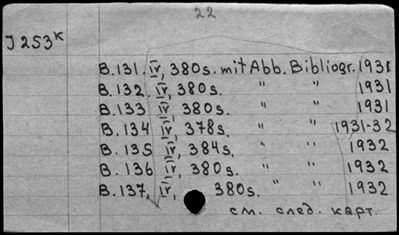 22
J 253ᴷ
B.131. IV, 380s. mit Abb. Bibliogr. 1931
B.132. IV, 380s. " " 1931
B.133 IV, 380s. " " 1931
B.134 IV, 378s. " " 1931-32
B.135 IV, 384s. " " 1932
B.136 IV, 380s. " " 1932
B.137, IV, 380s. " " 1932
см. след. карт.